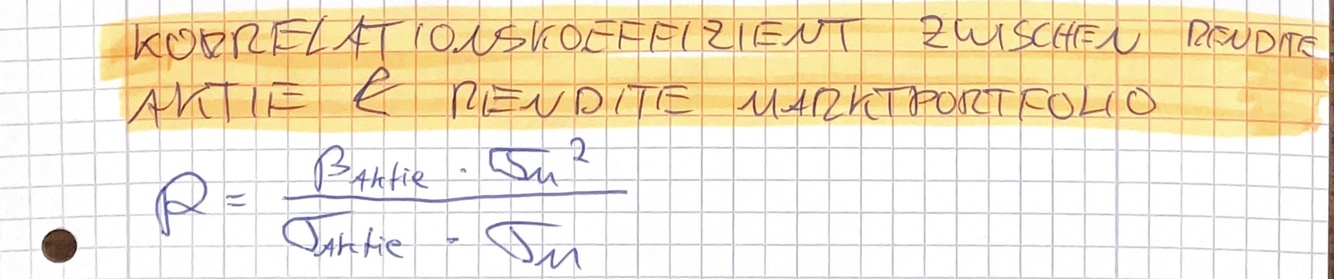 KORRELATIONSKOEFFIZIENT ZWISCHEN RENDITE
AKTIE & RENDITE MARKTPORTFOLIO
ρ = (β_Aktie · σ_M²) / (σ_Aktie · σ_M)